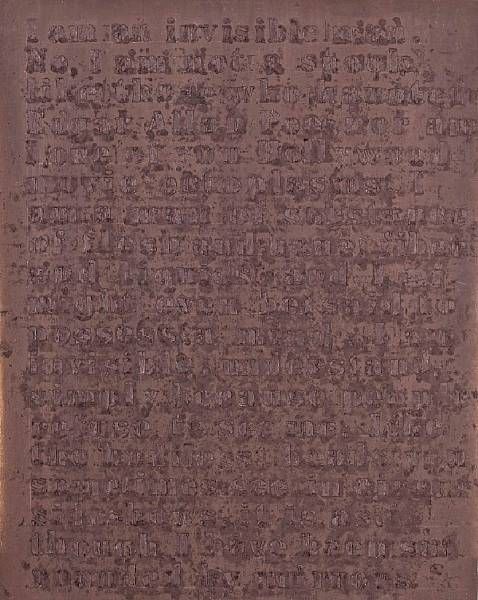 I am an invisible man.
No, I am not a spook
like those who haunted
Edgar Allan Poe; nor am
I one of your Hollywood
movie ectoplasms. I
am a man of substance,
of flesh and bone, fiber
and liquids and I
might even be said to
possess a mind. I am
invisible, understand,
simply because people
refuse to see me. Like
the bodiless heads you
sometimes see in circus
sideshows, it is as
though I have been sur
rounded by mirrors